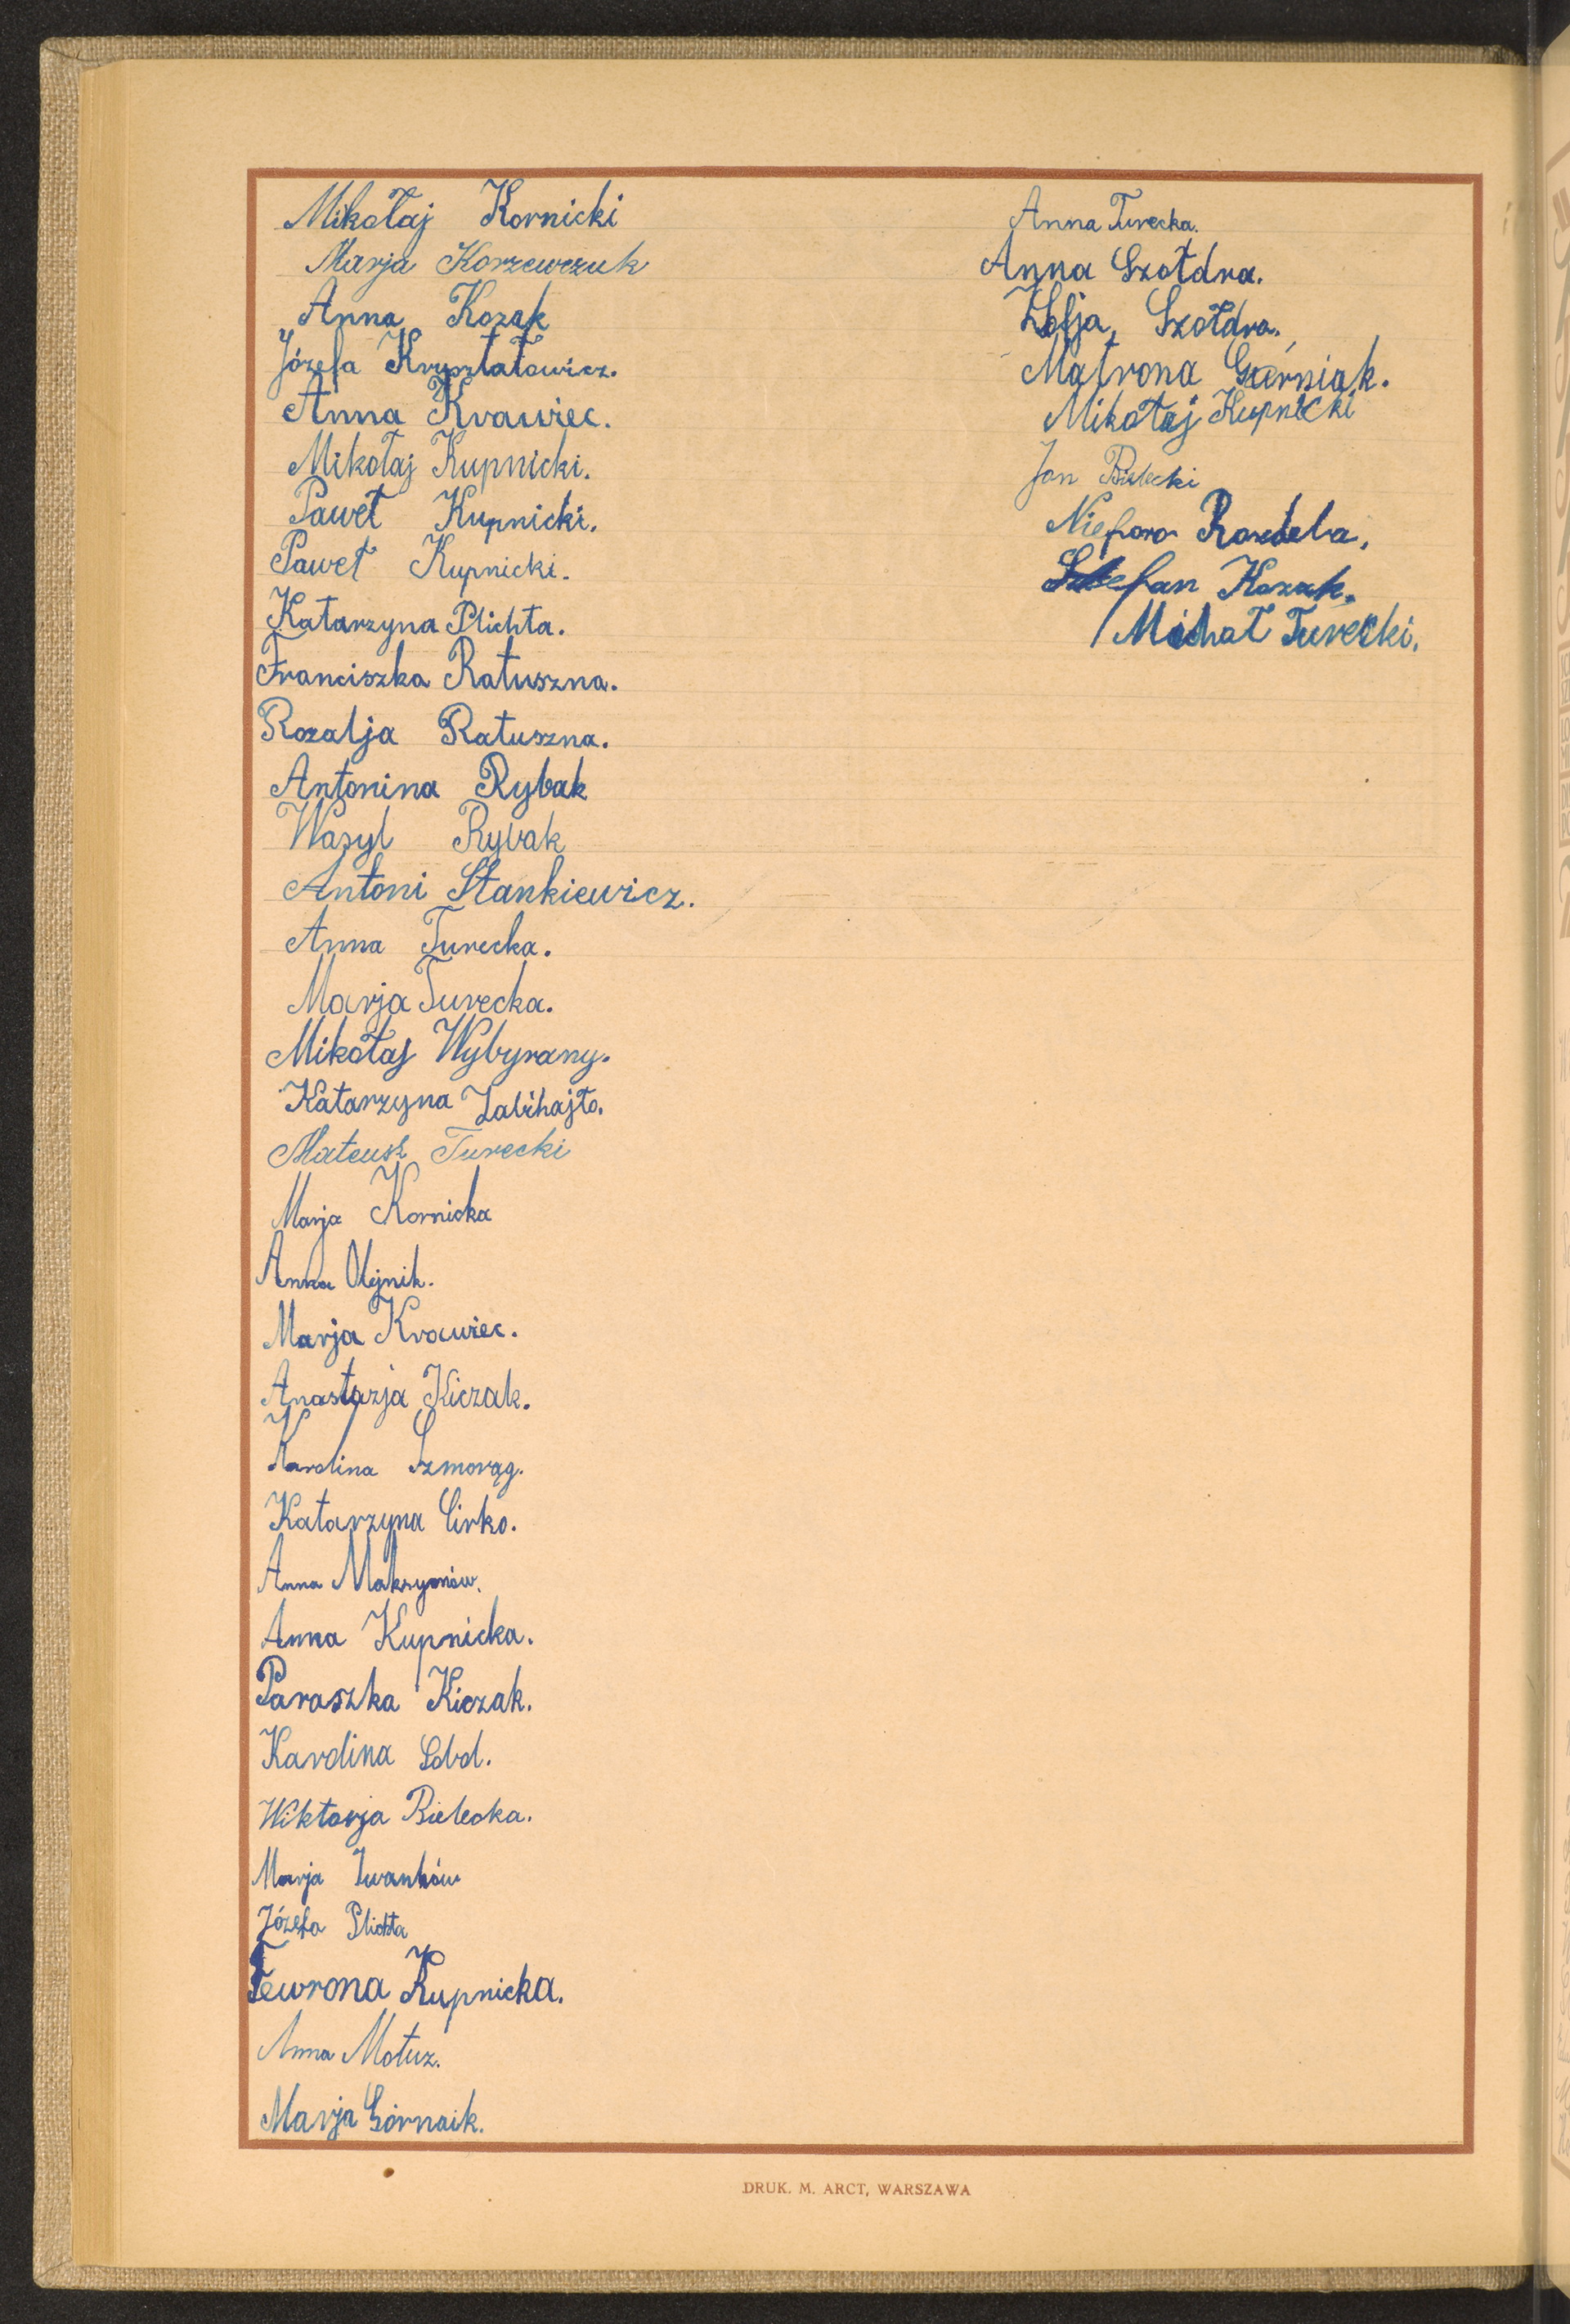 Mikołaj Kornicki
Marja Korzewczuk
Anna Kozak
Józefa Kryształowicz.
Anna Krawiec.
Mikołaj Kupnicki.
Paweł Kupnicki.
Paweł Kupnicki.
Katarzyna Plichta.
Franciszka Ratuszna.
Rozalja Ratuszna.
Antonina Rybak
Wasyl Rybak
Antoni Stankiewicz.
Anna Turecka.
Marja Turecka.
Mikołaj Wybyrany.
Katarzyna Zabihajło.
Mateusz Turecki
Marja Kornicka
Anna Olejnik.
Marja Krawiec.
Anastazja Kiczak.
Karolina Szmorąg.
Katarzyna Cirko.
Anna Maksymów.
Anna Kupnicka.
Paraszka Kiczak.
Karolina Sobol.
Wiktorja Bielecka.
Marja Iwanków
Józefa Plichta
Fewrona Kupnicka.
Anna Motuz.
Marja Górnaik.
Anna Turecka.
Anna Szołdra.
Zofja Szołdra.
Matrona Górniak.
Mikołaj Kupnicki
Jan Bielecki
Niefora
Stefan Kozak.
Michał Turecki.
DRUK. M. ARCT, WARSZAWA